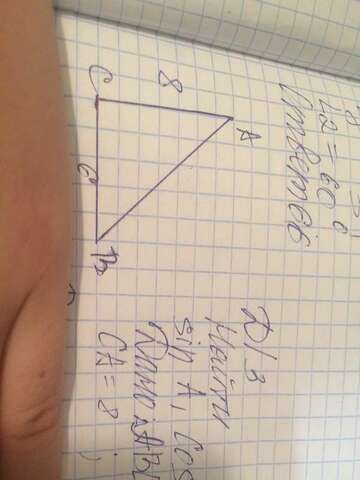 ∠2 = 60°
Ответ 66
A
8
C
6
B
Д/З
Найти
sin A, cos
Дано: AB
CA = 8,